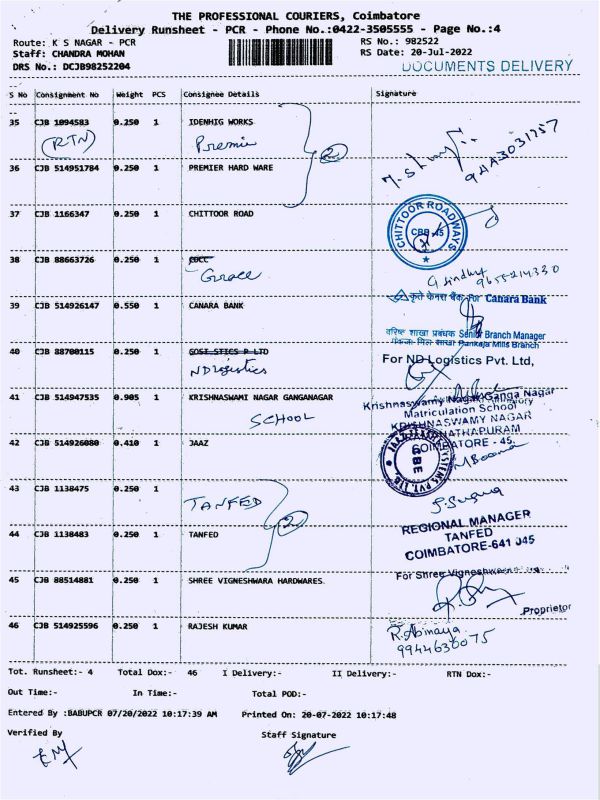 THE PROFESSIONAL COURIERS, Coimbatore
Delivery Runsheet - PCR - Phone No.:0422-3505555 - Page No.:4
Route: K S NAGAR - PCR RS No.: 982522
Staff: CHANDRA MOHAN RS Date: 20-Jul-2022
DRS No.: DCJB98252204 DOCUMENTS DELIVERY
S No Consignment No Weight PCS Consignee Details Signature
35 CJB 1094583 0.250 1 IDENHIG WORKS
(RTN) Premier 2
9443031757
36 CJB 514951784 0.250 1 PREMIER HARD WARE
37 CJB 1166347 0.250 1 CHITTOOR ROAD
CHITTOOR ROADWAYS
CBE-45
38 CJB 88663726 0.250 1
Grace
9655214330
39 CJB 514926147 0.550 1 CANARA BANK
कृते केनरा बैंक For Canara Bank
वरिष्ठ शाखा प्रबंधक Senior Branch Manager
Pankaja Mills Branch
40 CJB 88700115 0.250 1 GOSI STICS P LTD
ND logistics
For ND Logistics Pvt. Ltd,
41 CJB 514947535 0.905 1 KRISHNASWAMI NAGAR GANGANAGAR
SCHOOL
Krishnaswamy Nagar Ganga Nagar
Matriculation School
KRISHNASWAMY NAGAR
COIMBATORE - 45.
42 CJB 514926080 0.410 1 JAAZ
43 CJB 1138475 0.250 1
TANFED 2
44 CJB 1138483 0.250 1 TANFED
REGIONAL MANAGER
TANFED
COIMBATORE-641 045
45 CJB 88514881 0.250 1 SHREE VIGNESHWARA HARDWARES
For Shree Vigneshwara
Proprietor
46 CJB 514925596 0.250 1 RAJESH KUMAR
R. Abinaya
9944630075
Tot. Runsheet:- 4 Total Dox:- 46 I Delivery:- II Delivery:- RTN Dox:-
Out Time:- In Time:- Total POD:-
Entered By :BABUPCR 07/20/2022 10:17:39 AM Printed On: 20-07-2022 10:17:48
Verified By Staff Signature